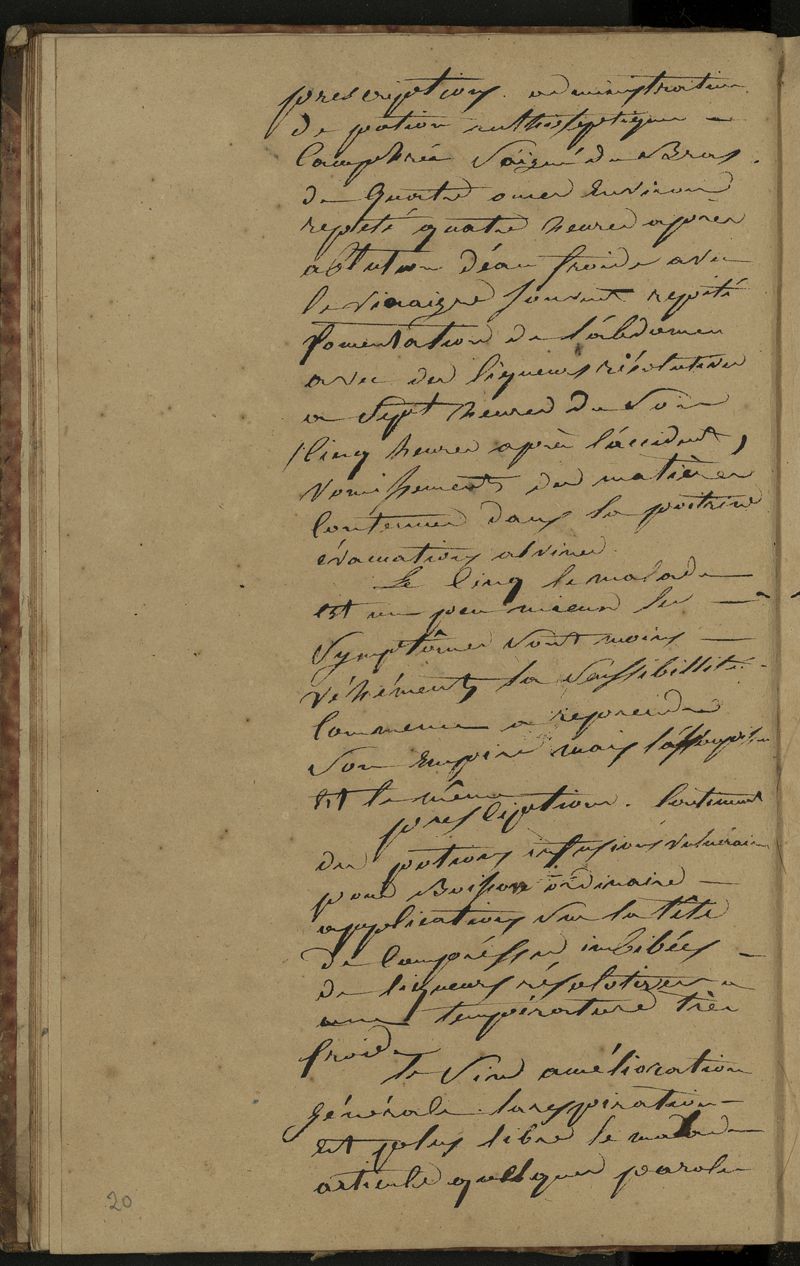 prescriptions. administration
de potion anthiseptique —
Camphrée Saignée du Bras.
de quatre onces Environ
repété quatre heures après
ablution d'éau froide avec
le vinaigre souvent repété
fomentation de l'abdomen
avec des liqueurs résolutives
a Sept heures du Soir
/cinq heures après l'áccident,
vomissements des matières
Contenues dans la poitrine
évacuations alvines.
Le Cinq le malade
est un peu mieux les —
Symptômes sont moins —
véhéments, la Sensibillité
Commence a reprendre
Son Empire mais
est le même
prescription. Continuer
des potions infusions vulnéraires
pour Boisson órdinaire —
applications sur la tête
de Compresses imbibées —
de liqueurs résolotives a
une température très
froide
le Six amélioration
générale. la respiration —
est plus libre le malade
articule quelques paroles
20